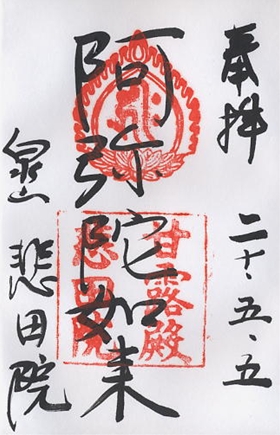 奉拝
二十・五・五
阿弥陀如来
甘露殿
悲田院
泉山
悲田院